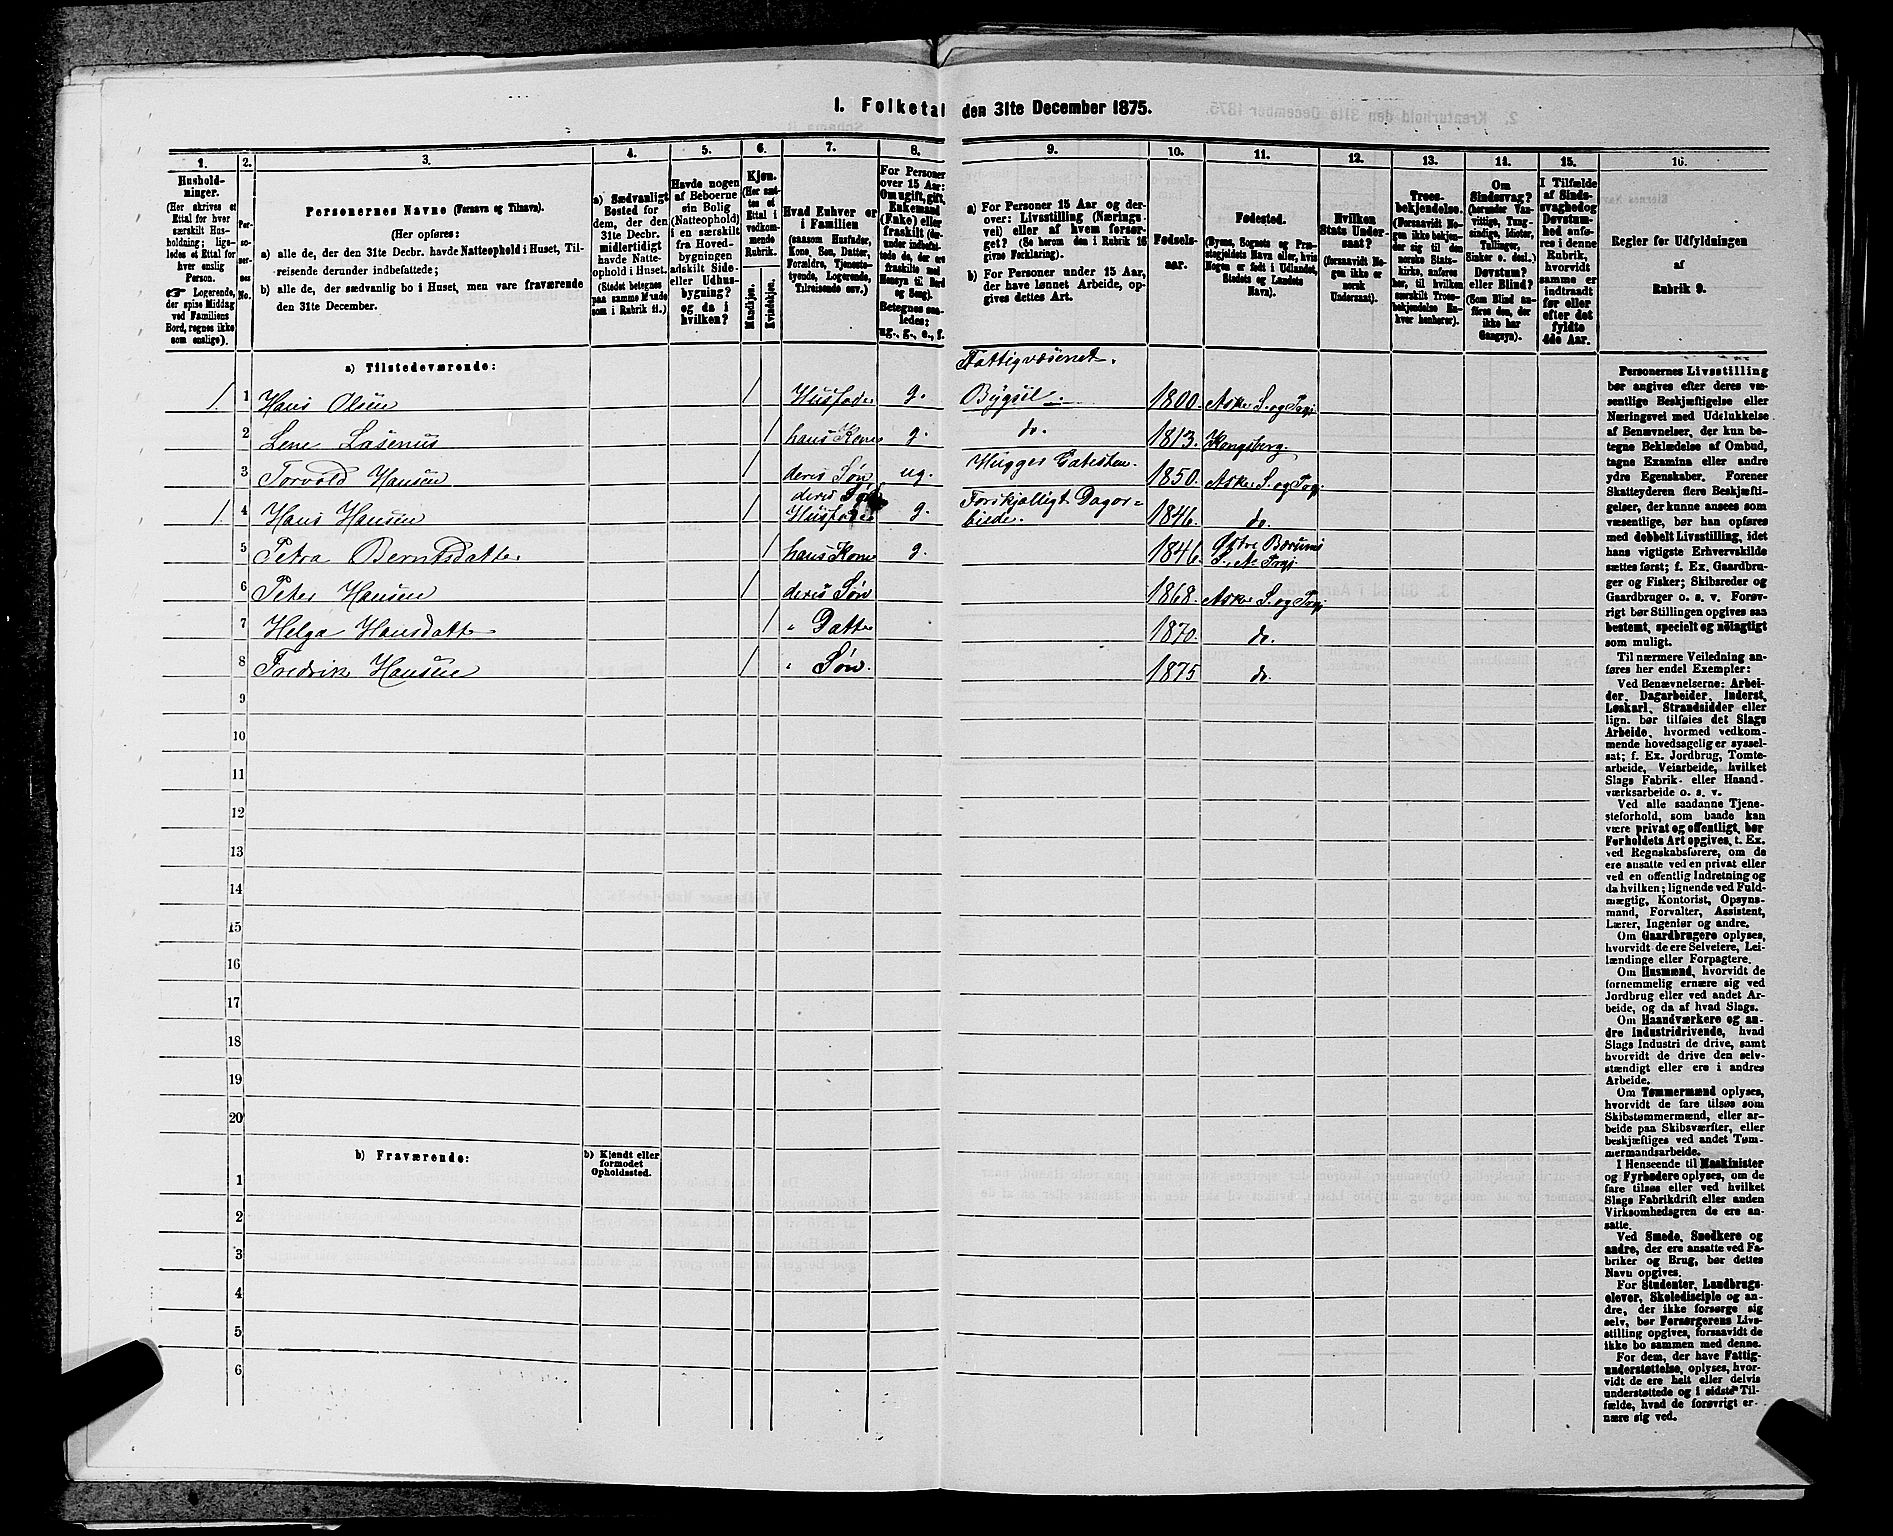 1. Folketal den 31te December 1875.
1.
2.
3.
4.
5.
6.
7.
8.
9.
10.
11.
12.
13.
14.
15.
16.
Hushold-
ninger.
(Her skrives et
Ettal for hver
særskilt Hus-
holdning; lige-
ledes et Ettal for
hver enslig
Person.
☞ Logerende,
der spise Middag
ved Familiens
Bord, regnes ikke
som enslige).
Per-
so-
ner-
nes
No.
Personernes Navne (Fornavn og Tilnavn).
(Her opføres:
a) alle de, der den 31te Decbr. havde Natteophold i Huset, Til-
reisende derunder indbefattede;
b) alle de, der sædvanlig bo i Huset, men vare fraværende
den 31te December.
a) Sædvanligt
Bosted for
dem, der den
31te Decbr.
midlertidigt
havde Natte-
ophold i Huset.
(Stedet betegnes
paa samme Maade
som i Rubrik 11.)
Havde nogen
af Beboerne
sin Bolig
(Natteophold)
i en særskilt
fra Hoved-
bygningen
adskilt Side-
eller Udhus-
bygning?
og da i
hvilken?
Kjøn.
(Her sæt-
tes et
Ettal i
vedkom-
mende
Rubrik.
Mandskjøn.
Kvindekjøn.
Hvad Enhver er
i Familien
(saasom Husfader,
Kone, Søn, Datter,
Forældre, Tjeneste-
tyende, Logerende,
Tilreisende osv.)
For Personer
over 15 Aar:
Om ugift, gift,
Enkemand
(Enke) eller
fraskilt (der-
under indbefat-
tede de, der ere
fraskilte med
Hensyn til Bord
og Seng).
Betegnes saa-
ledes:
ug., g., e., f.
a) For Personer 15 Aar og der-
over: Livsstilling (Nærings-
vei) eller af hvem forsør-
get? (Se herom den i Rubrik 16
givne Forklaring).
b) For Personer under 15 Aar,
der have lønnet Arbeide, op-
gives dettes Art.
Fødsels-
aar.
Fødested.
(Byens, Sognets og Præ-
stegjeldets Navn eller, hvis
Nogen er født i Udlandet,
Stedets og Landets
Navn).
Hvilken
Stats Under-
saat?
(forsaavidt No-
gen ikke er
norsk
Undersaat).
Troes-
bekjendelse.
(Forsaavidt No-
gen ikke bekjen-
der sig til den
norske Stats-
kirke, anføres
her, til hvilken
særskilt Troes-
bekjendelse En-
hver henhører).
Om
Sindssvag?
(herunder Van-
vittige, Tung-
sindige, Idioter,
Tullinger,
Sinker o. desl.)
Døvstum?
eller Blind?
(Som Blind an-
føres den, der
ikke har
Gangsyn).
I Tilfælde
af Sinds-
svaghed og
Døvstum-
hed anfø-
res i denne
Rubrik,
hvorvidt
samme er
indtraadt
før eller
efter det
fyldte
4de Aar.
Regler for Udfyldningen
af
Rubrik 9.
a) Tilstedeværende:
Fattigvæsenet.
1. 1 Hans Olsen 1 Husfader g. Bygsel 1800. Asker S. og Pægj.
2 Lene Lasenus 1 hans Kone g. do. 1813. Kongsberg.
3 Torvold Hansen 1 deres Søn ug. 1850. Asker S. og Pgj.
deres Søn
1. 4 Hans Hansen 1 Husfader g. Forskjelligt Dagar-
beide. 1846. do.
5 Petra Berntsdatter 1 hans Kone g. 1846. Østre Bærums
S. & Prgj.
6 Peter Hansen 1 deres Søn 1868. Asker S. og Prgj
7 Helga Hansdatter 1 " Datter 1870. do.
8 Fredrik Hansen 1 " Søn. 1875 do.
9
10
11
12
13
14
15
16
17
18
19
20
b) Fraværende:
b) Kjendt eller
formodet
Opholdssted.
1
2
3
4
5
6
Personernes Livsstilling
bør angives efter deres væ-
sentlige Beskjæftigelse eller
Næringsvei med Udelukkelse
af Benævnelser, der kun be-
tegne Beklædelse af Ombud,
tagne Examina eller andre
ydre Egenskaber. Forener
Skatteyderen flere Beskjæfti-
gelser, der kunne ansees som
væsentlige, bør han opføres
med dobbelt Livsstilling, idet
hans vigtigste Erhvervskilde
sættes først; f. Ex. Gaardbru-
ger og Fisker; Skibsreder og
Gaardbruger o. s. v. Forøv-
rigt bør Stillingen opgives saa
bestemt, specielt og nöiagtigt
som muligt.
Til nærmere Veiledning an-
føres her endel Exempler:
Ved Benævnelserne: Arbei-
der, Dagarbeider, Inderst,
Løskarl, Strandsidder eller
lign. bør tilføies det Slags
Arbeide, hvormed vedkom-
mende hovedsagelig er syssel-
sat; f. Ex. Jordbrug, Tomte-
arbeide, Veiarbeide, hvilket
Slags Fabrik- eller Haand-
værksarbeide o. s. v.
Ved alle saadanne Tjene-
steforhold, som baade kan
være privat og offentligt, bør
Forholdets Art opgives, t. Ex.
ved Regnskabsførere, om de
ere ansatte ved en privat eller
ved en offentlig Indretning og
da hvilken; lignende ved Fuld-
mægtig, Kontorist, Opsyns-
mand, Forvalter, Assistent,
Lærer, Ingeniør og andre.
Om Gaardbrugere oplyses,
hvorvidt de ere Selveiere, Lei-
lændinge eller Forpagtere.
Om Husmænd, hvorvidt de
fornemmelig ernære sig ved
Jordbrug eller ved andet Ar-
beide, og da af hvad Slags.
Om Haandværkere og an-
dre Industridrivende, hvad
Slags Industri de drive, samt
hvorvidt de drive den selv-
stændigt eller ere i andres
Arbeide.
Om Tømmermænd oplyses,
hvorvidt de fare tilsøs som
Skibstømmermænd, eller ar-
beide paa Skibsværfter, eller
beskjæftiges ved andet Tøm-
mermandsarbeide.
I Henseende til Maskinister
og Fyrbødere oplyses, om de
fare tilsøs eller ved hvilket
Slags Fabrikdrift eller anden
Virksomhedsgren de ere an-
satte.
Ved Smede, Snedkere og
andre, der ere ansatte ved Fa-
briker og Brug, bør dettes
Navn opgives.
For Studenter, Landbrugs-
elever, Skoledisciple og an-
dre, der ikke forsørge sig
selv, bør Forsørgerens Livs-
stilling opgives, forsaavidt de
ikke bo sammen med denne.
For dem, der have Fattig-
understøttelse, oplyses, hvor-
vidt de ere helt eller delvis
understøttede og i sidste Til-
fælde, hvad de forøvrigt er-
nære sig ved.